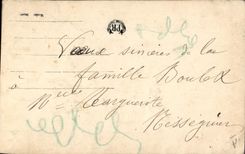 Vœux sincères de la
famille Boulet
à Mlle Marguerite
Rességuier